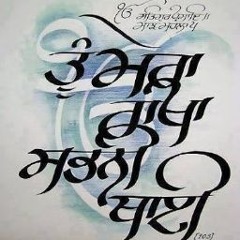 ੴ ਸਤਿਗੁਰ ਪ੍ਰਸਾਦਿ ॥
ਮਾਝ ਮਹਲਾ ੫
ਤੂੰ ਮੇਰਾ
ਰਾਖਾ
ਸਭਨੀ
ਥਾਈ
[103]